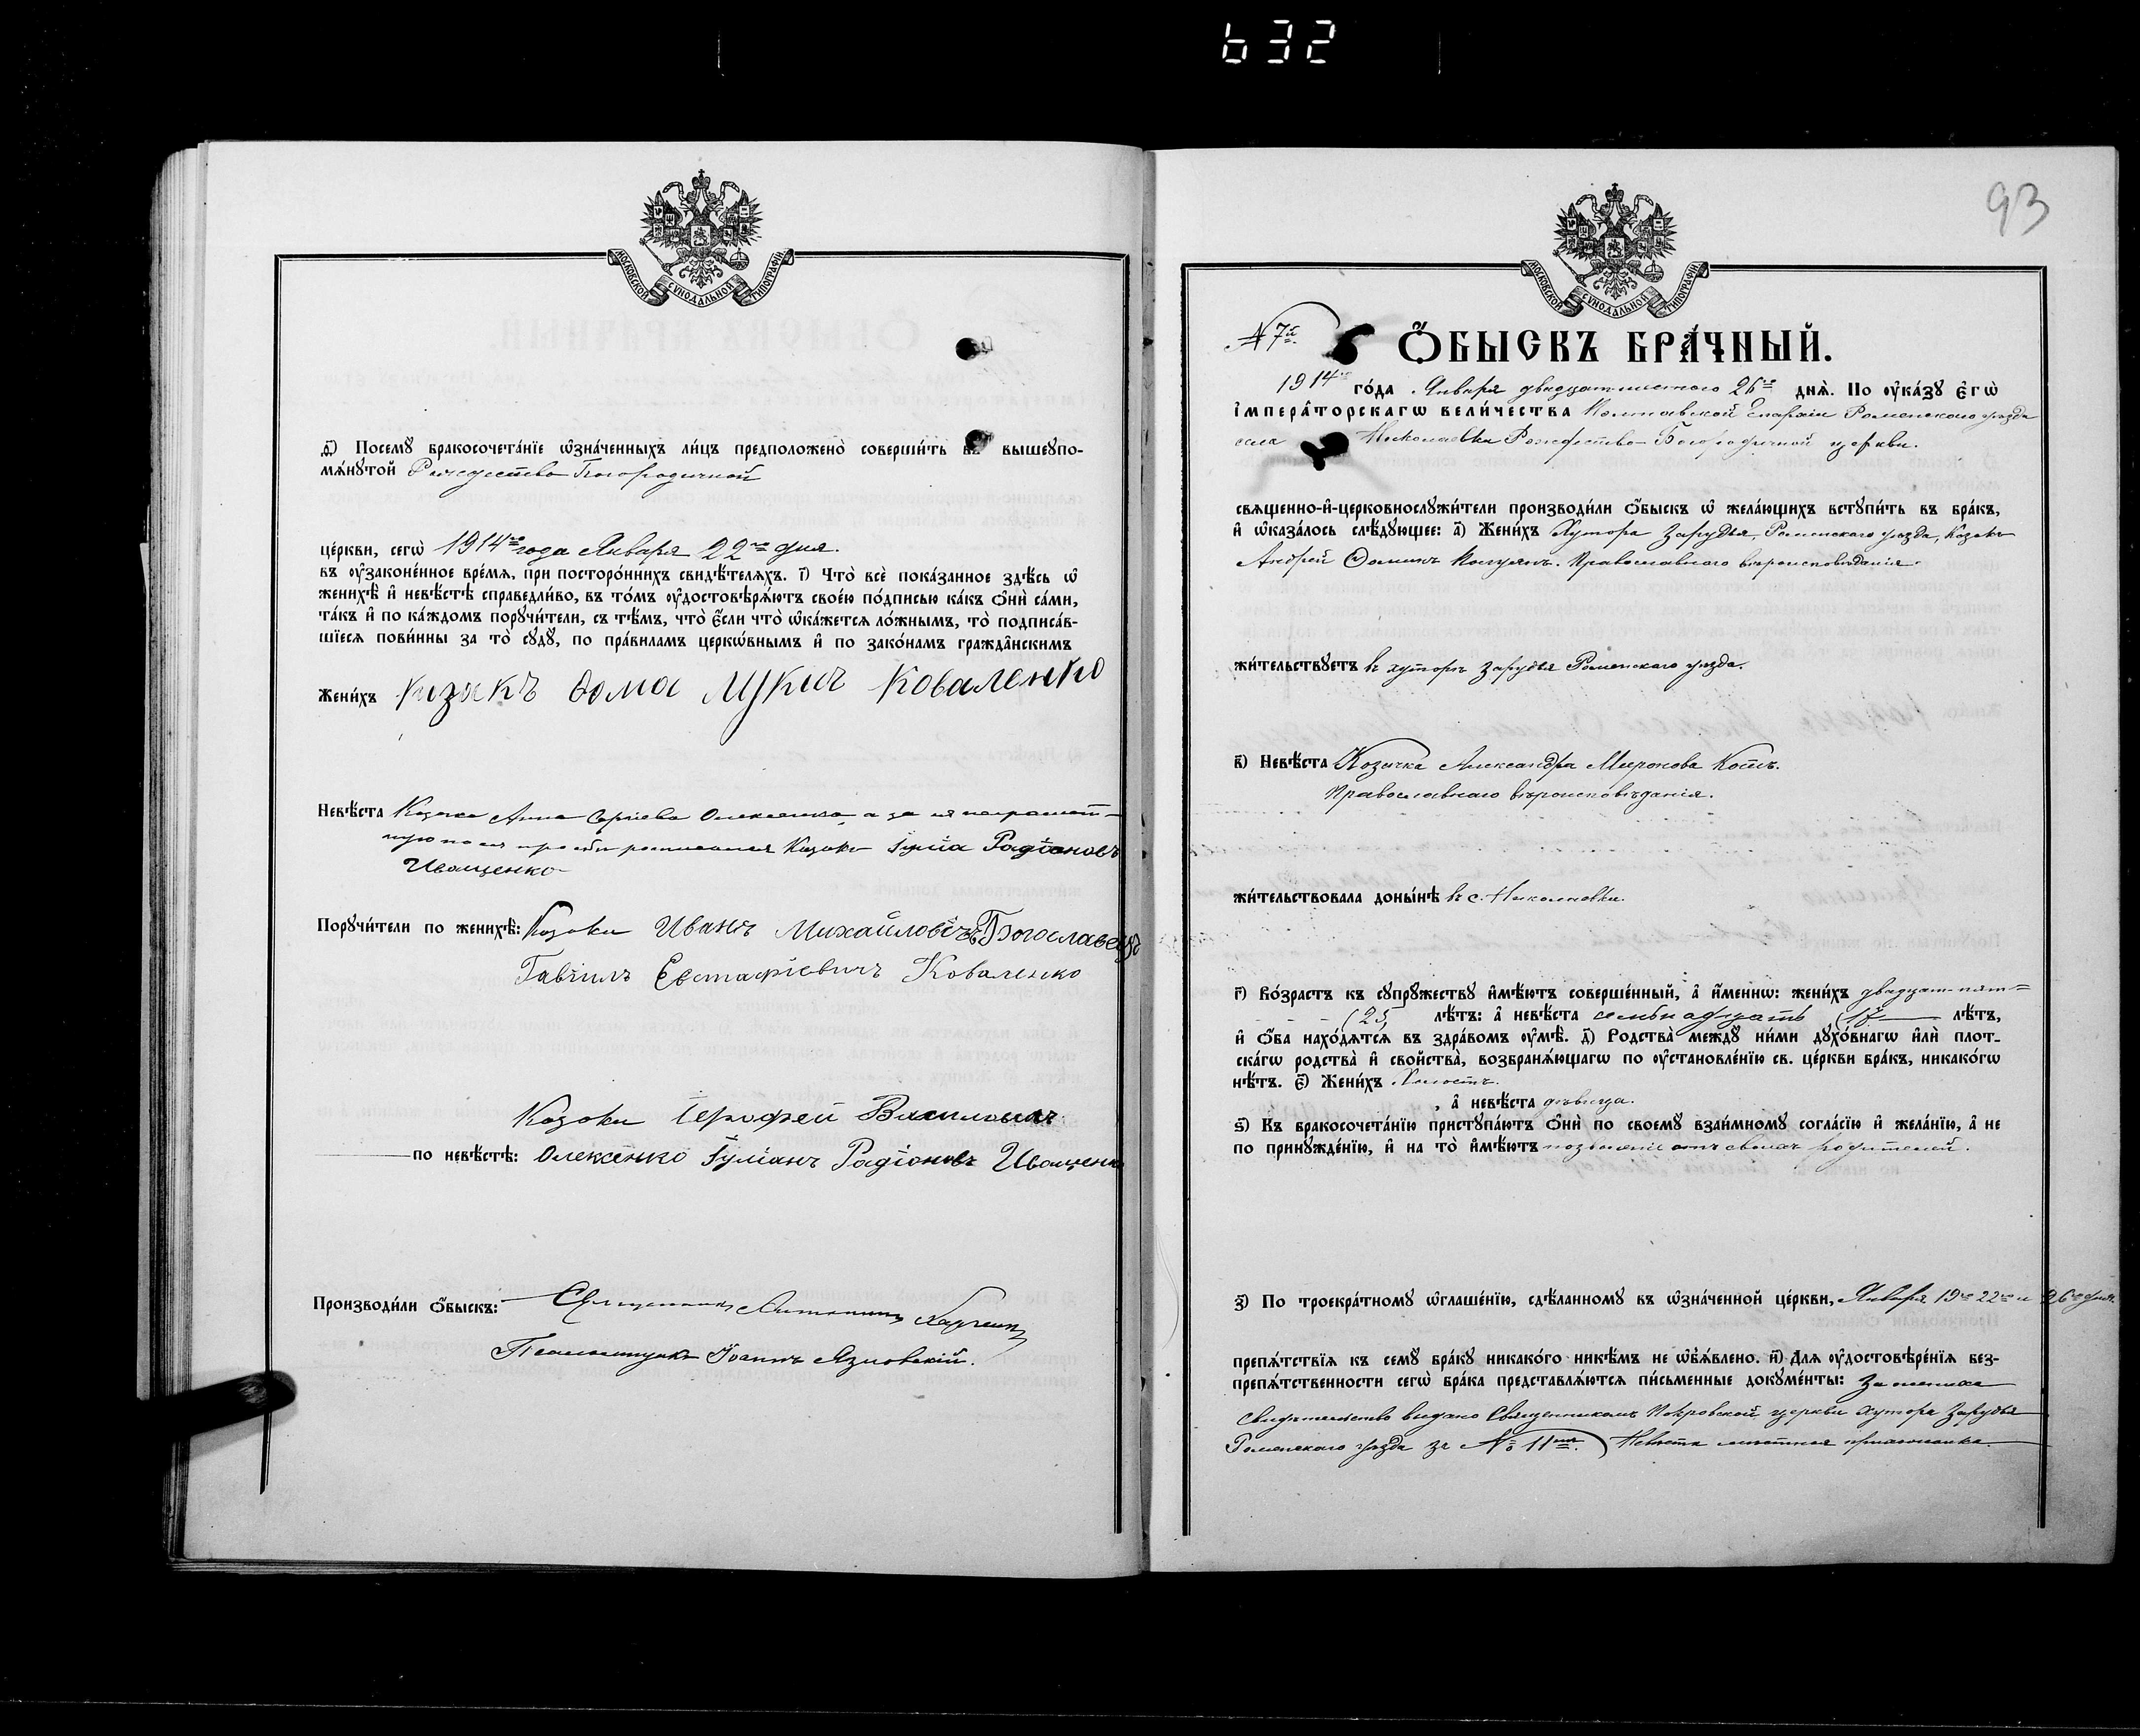 632
МОСКОВСКОЙ СѴНОДАЛЬНОЙ ТИПОГРАФІИ
ѳ҃) Посемꙋ бракосочета́нїе ѡ҆зна́ченныхъ ли́цъ предположено̀ соверши́ть въ вышеꙋпо-
мѧ́нꙋтой Рождество-Богородичной
це́ркви, сегѡ̀ 1914го года Января 22го дня.
въ ᲂу҆законе́нное вре́мѧ, при посторо́ннихъ свидѣ́телѧхъ. і҃) Что̀ всѐ пока́занное здѣ́сь ѡ҆
женихѣ̀ и҆ невѣ́стѣ справедли́во, въ то́мъ ᲂу҆достовѣрѧ́ютъ свое́ю по́дписью ка́къ ѻ҆нѝ са́ми,
та́къ и҆ по ка́ждомъ порꙋчи́тели, съ тѣ́мъ, что̀ є҆́сли что̀ ѡ҆ка́жетсѧ ло́жнымъ, то̀ подписа́в-
шїесѧ пови́нны за то̀ сꙋдꙋ̀, по пра́виламъ церкѡ́внымъ и҆ по зако́намъ гражда̂нскимъ
Жени́хъ Козакъ Ѳома Лукич Коваленко
Невѣ́ста Козачка Анна Сергіева Олексенко, а за ея неграмот-
ную по ея просьбѣ росписался Козакъ Іуліа Радіоновъ
Иващенко
Порꙋчи́тели по женихѣ̀: Козаки Иванъ Михайловичъ Богославецъ
Гавріилъ Евстафіевичъ Коваленко
Козаки Іерофей Васильевъ
по невѣ́стѣ: Олексенко Іуліанъ Радіоновъ Иващенко
Производи́ли ѻ҆́быскъ: Священникъ Антонинъ
Псаломщикъ Іоаннъ Язловскій.
93
МОСКОВСКОЙ СѴНОДАЛЬНОЙ ТИПОГРАФІИ
№ 7й. Ѻ҆́БЫСКЪ БРА́ЧНЫЙ.
1914го го́да Января двадцать шестого 26го днѧ̀. По ᲂу҆ка́зꙋ є҆гѡ̀
і҆мпера́торскагѡ вели́чества Полтавской Епархіи Роменского уѣзда
села Николаевки Рождество-Богородичной церкви.
свѧще́нно-и҆-церковнослꙋжи́тели производи́ли ѻ҆́быскъ ѡ҆ жела́ющихъ вступи́ть въ бра́къ,
и҆ ѡ҆каза́лось слѣ́дꙋющее: а҃) Жени́хъ Хутора Зарудья, Роменского уѣзда, Козакъ
Андрей Ѳоминъ. Православнаго вѣроисповѣданія.
жи́тельствꙋетъ въ хуторѣ Зарудья Роменскаго уѣзда.
в҃) Невѣ́ста Козачка Александра Миронова Котъ.
Православнаго вѣроисповѣданія.
жи́тельствовала доны́нѣ въ с. Николаевки.
г҃) Во́зрастъ къ сꙋпрꙋ́жествꙋ и҆мѣ́ютъ соверше́нный, а҆ и҆́меннѡ: жени́хъ двадцать пять
(25) лѣ́тъ: а҆ невѣ́ста семьнадцать (17 лѣ́тъ,
и҆ ѻ҆́ба нахо́дѧтсѧ въ здра́вомъ ᲂу҆мѣ̀. д҃) Родства̀ междꙋ̀ ни́ми дꙋхо́внагѡ и҆лѝ плот-
ска́гѡ родства̀ и҆ свойства̀, возбранѧ́ющагѡ по ᲂу҆становле́нїю св. це́ркви бра́къ, никако́гѡ
нѣ́тъ. є҃) Жени́хъ Холостъ.
, а҆ невѣ́ста дѣвица.
ѕ҃) Къ бракосочета́нїю пристꙋпа́ютъ ѻ҆нѝ по своемꙋ̀ взаи́мномꙋ согла́сїю и҆ жела́нїю, а҆ не
по принꙋжде́нїю, и҆ на то̀ и҆мѣ́ютъ позволеніе отъ своихъ родителей.
з҃) По троекра́тномꙋ ѡ҆глаше́нїю, сдѣ́ланномꙋ въ ѡ҆зна́ченной це́ркви, Января 19го 22го и 26го дня
препѧ́тствїѧ къ семꙋ̀ бра́кꙋ никако́го никѣ́мъ не ѡ҆б̾ѧ́влено. и҃) Длѧ ᲂу҆достовѣре́нїѧ без-
препѧ́тственности сегѡ̀ бра́ка представлѧ́ютсѧ пи́сьменные докꙋме́нты: За жениха
свидѣтельство выдано Священникомъ Покровской церкви хутора Зарудья
Роменского уѣзда за № 11мъ. Невѣста мѣстная прихожанка.